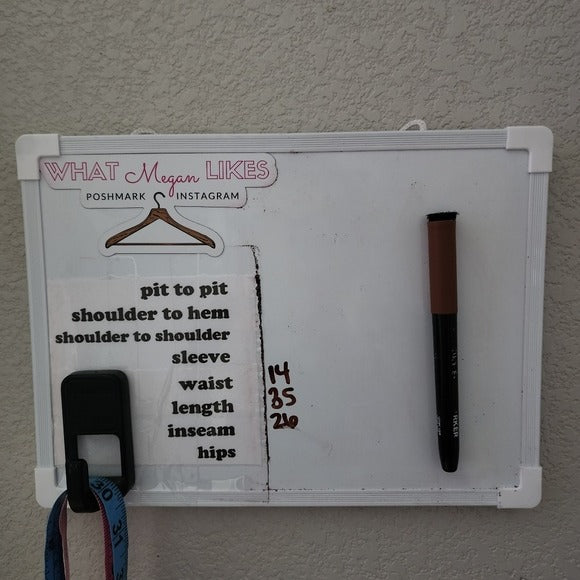 WHAT Megan LIKES
POSHMARK INSTAGRAM
pit to pit
shoulder to hem
shoulder to shoulder
sleeve
waist 14
length 35
inseam 26
hips
30
31